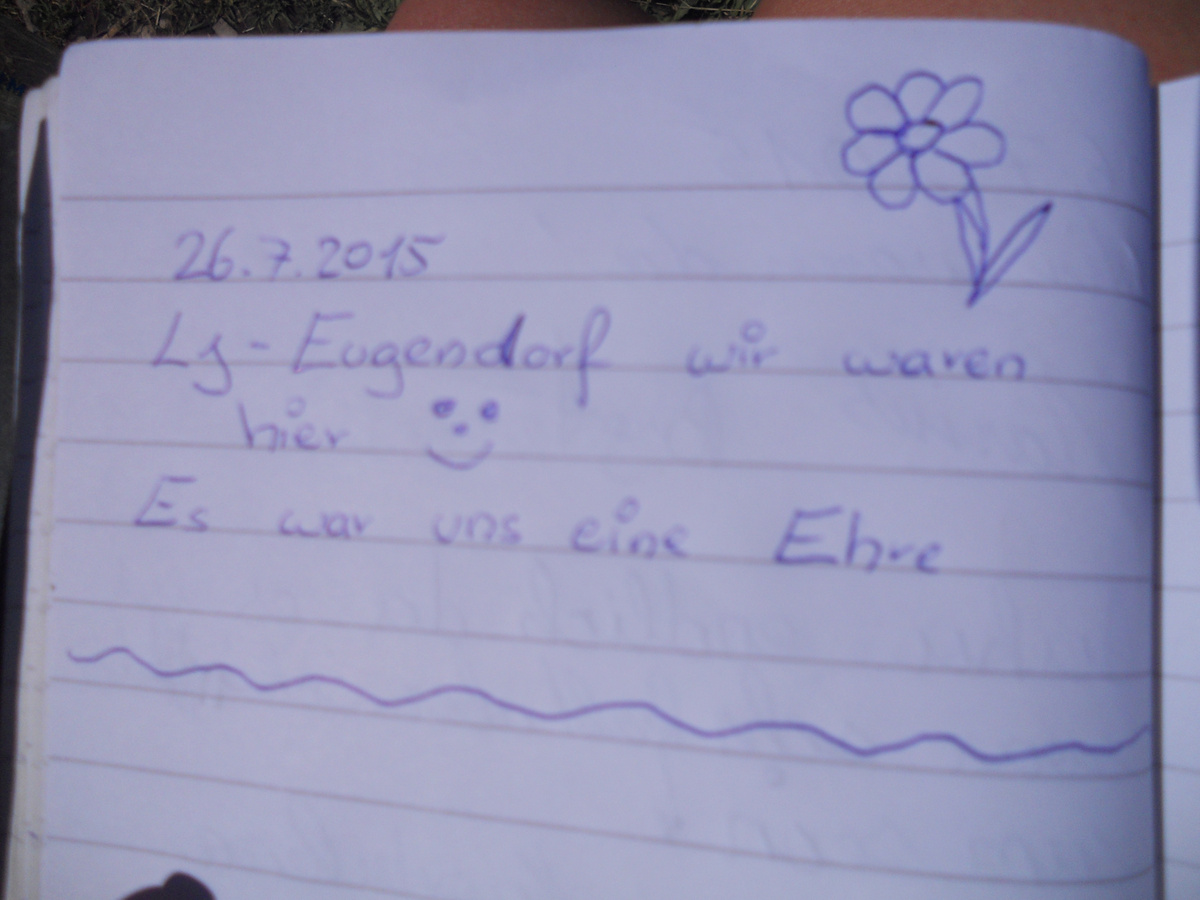 26.7.2015
Lj-Eugendorf wir waren
hier
Es war uns eine Ehre